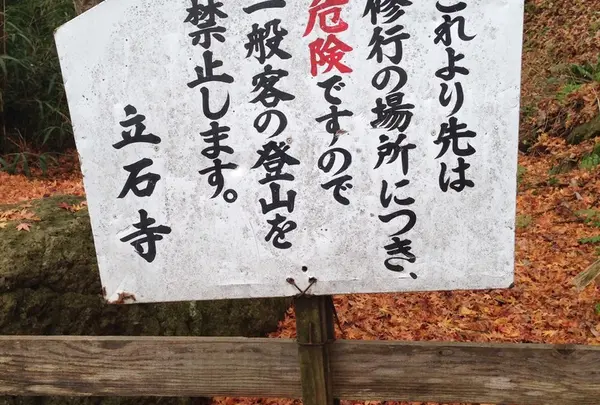 これより先は
修行の場所につき、
危険ですので
一般客の登山を
禁止します。
立石寺